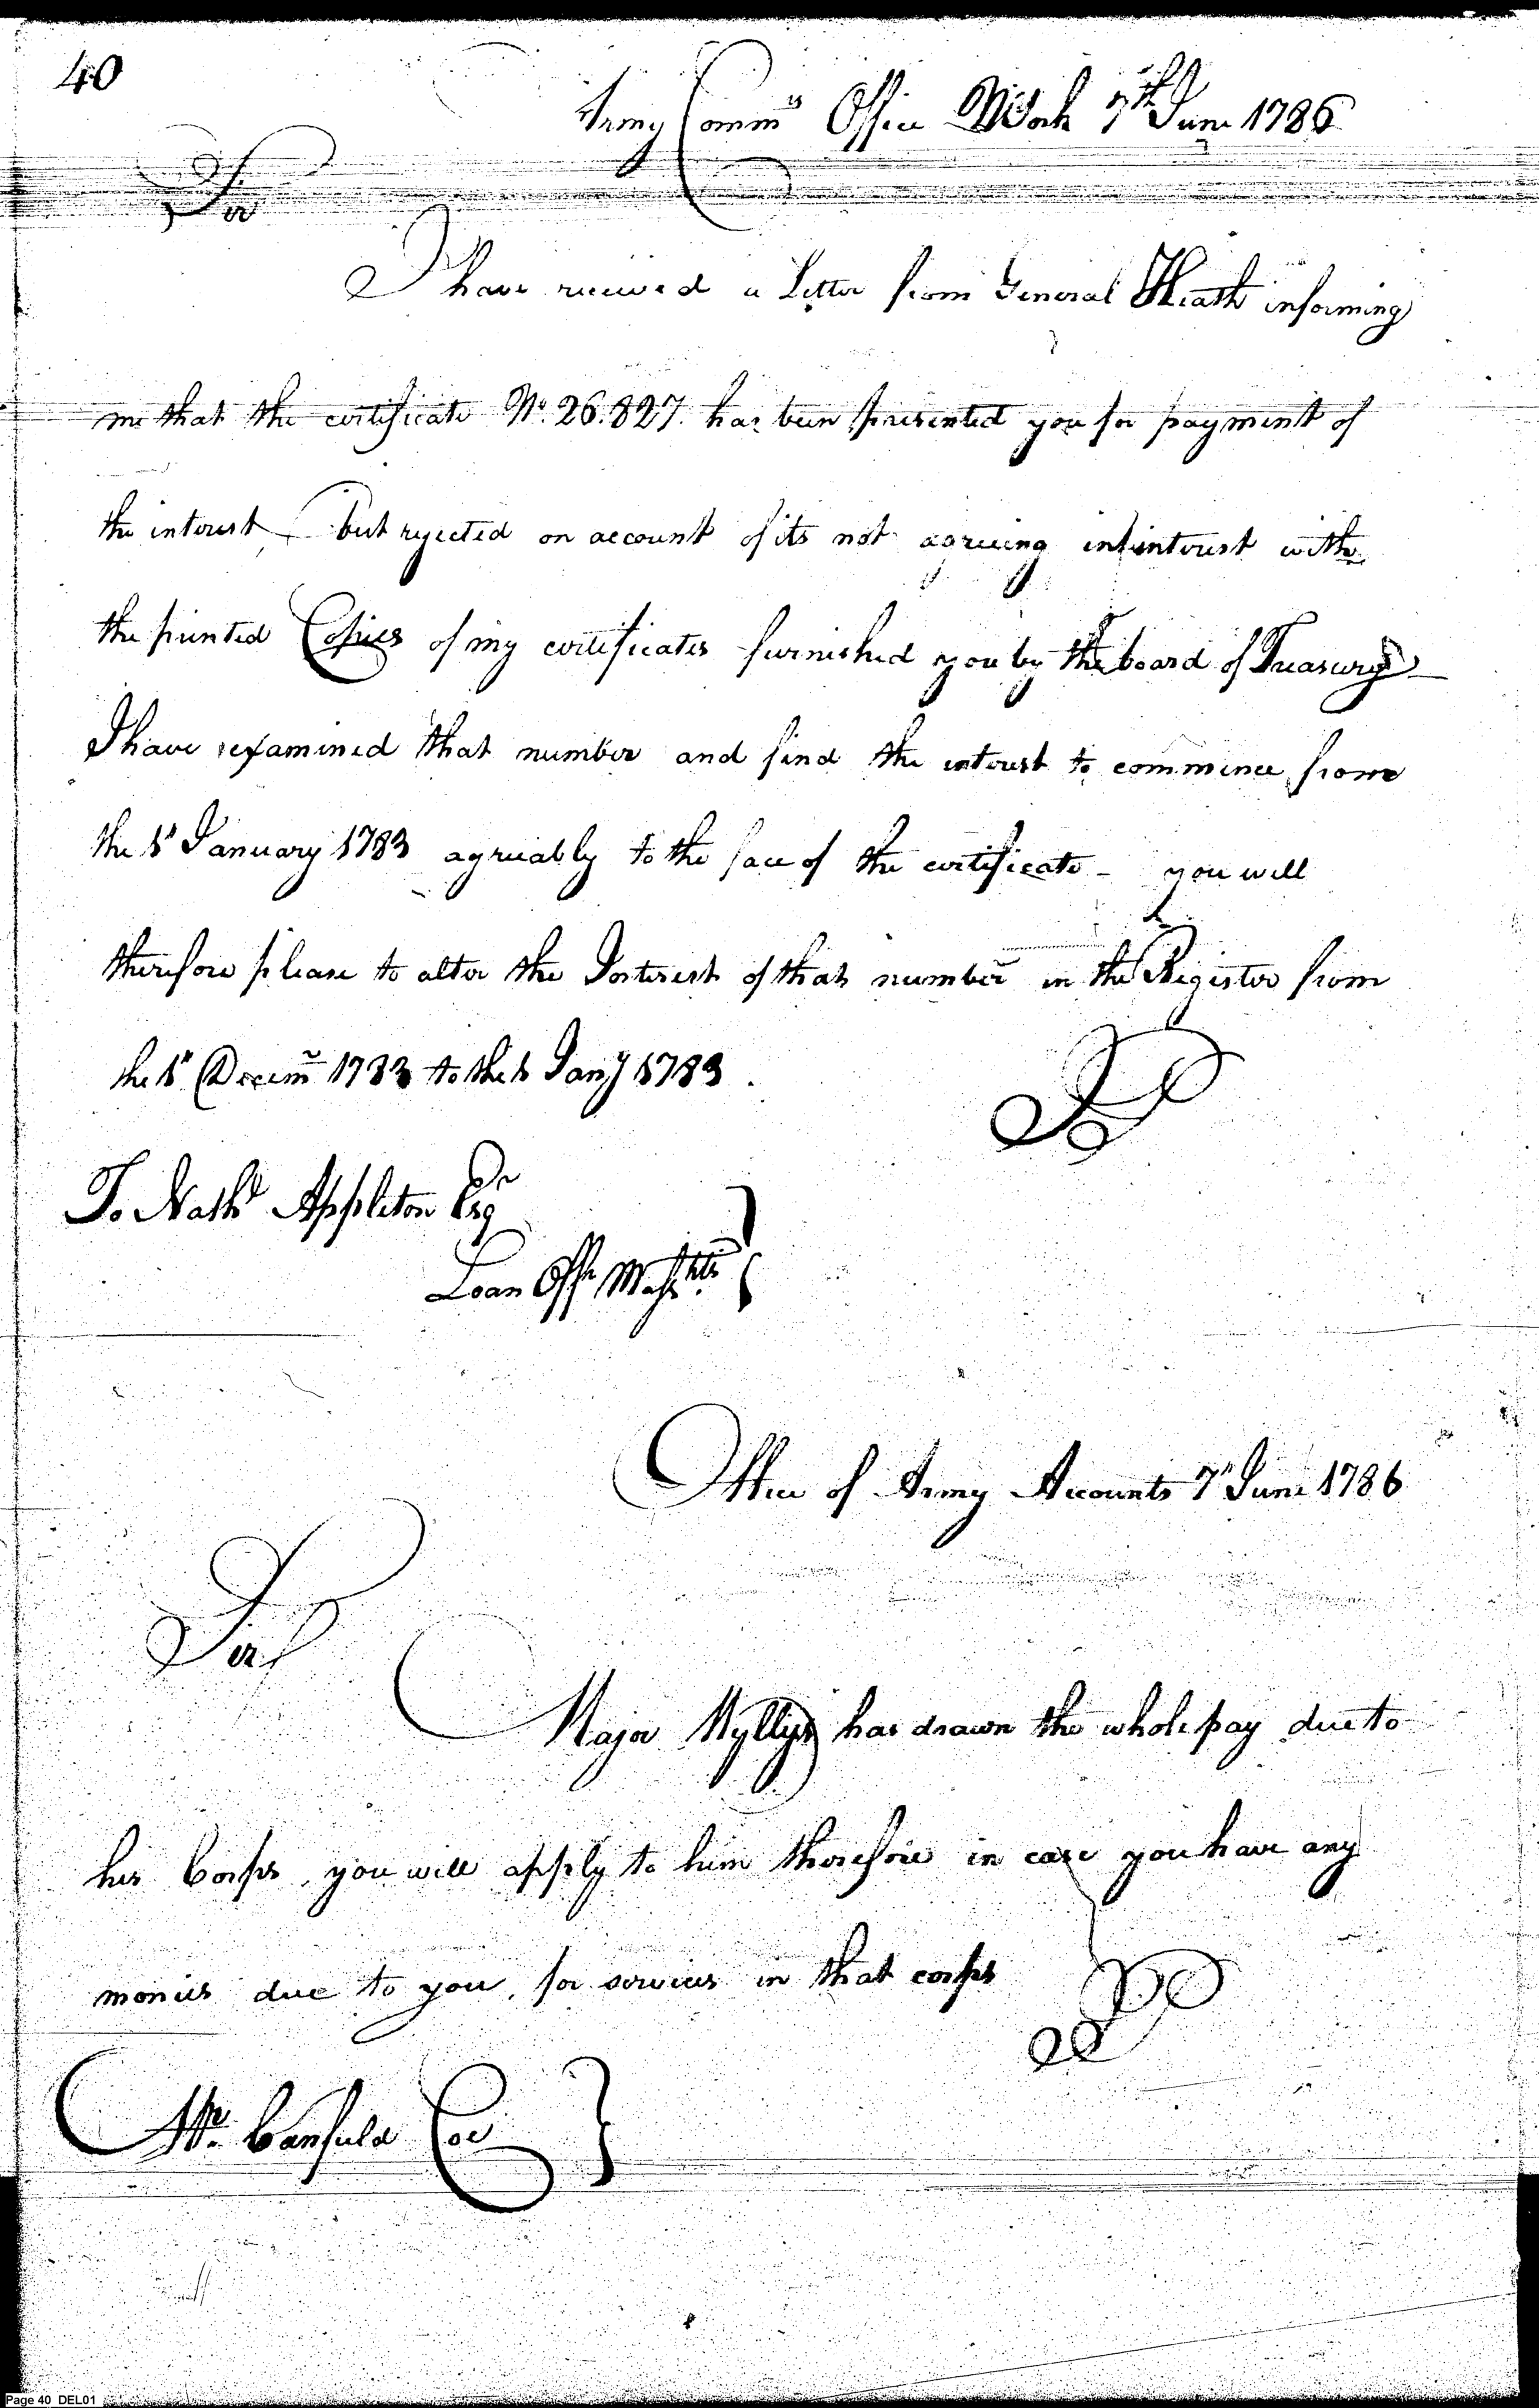 40
Army Comm:rs Office NYork 7th June 1786
Sir
I have received a Letter from General Heath informing
me that the certificate No. 26.827. has been presented you for payment of
the interest, but rejected on account of its not agreeing in interest with
the printed Copies of my certificates furnished you by the board of Treasury
I have examined that number and find the interest to commence from
the 1st January 1783 agreeably to the face of the certificate - you will
therefore please to alter the Interest of that number in the Register from
the 1st Decemr 1783 to the 1 Jany 1783.
To Nathl Appleton Esqr
Loan Offr Massa.tts
Office of Army Accounts 7th June 1786
Sir
Major Wyllys has drawn the whole pay due to
his Corps, you will apply to him therefore in case you have any
monies due to you, for services in that corps
Mr. Canfield Coe
Page 40 DEL01